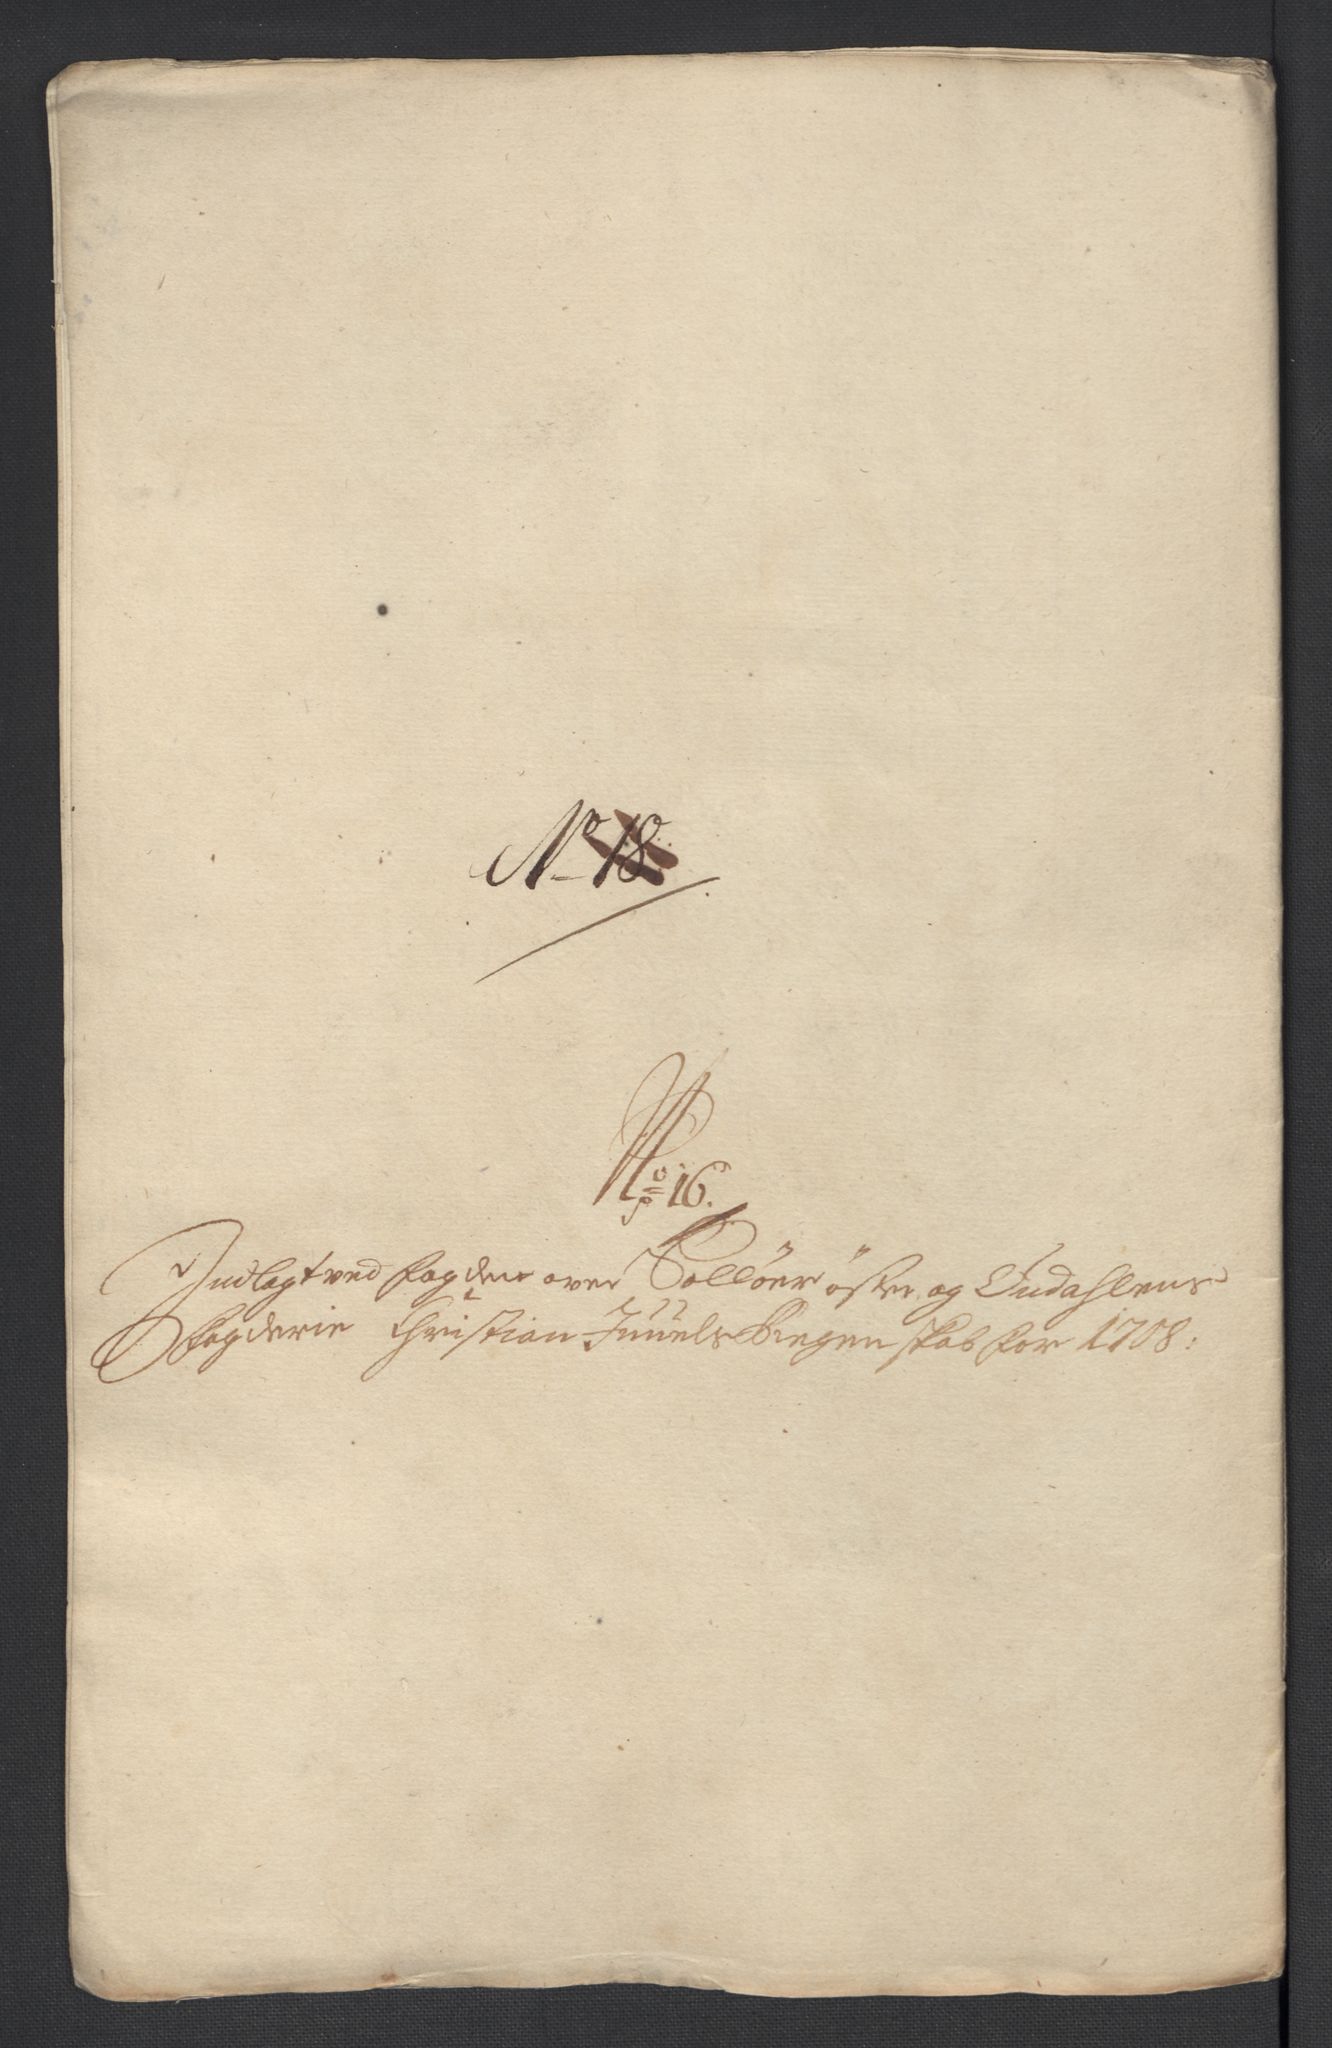 No 18.
No 16.
Indlagt ved fogden over Solløer østre og Ôudahlens
fogderie Christian Juuels Regenskab for 1708: